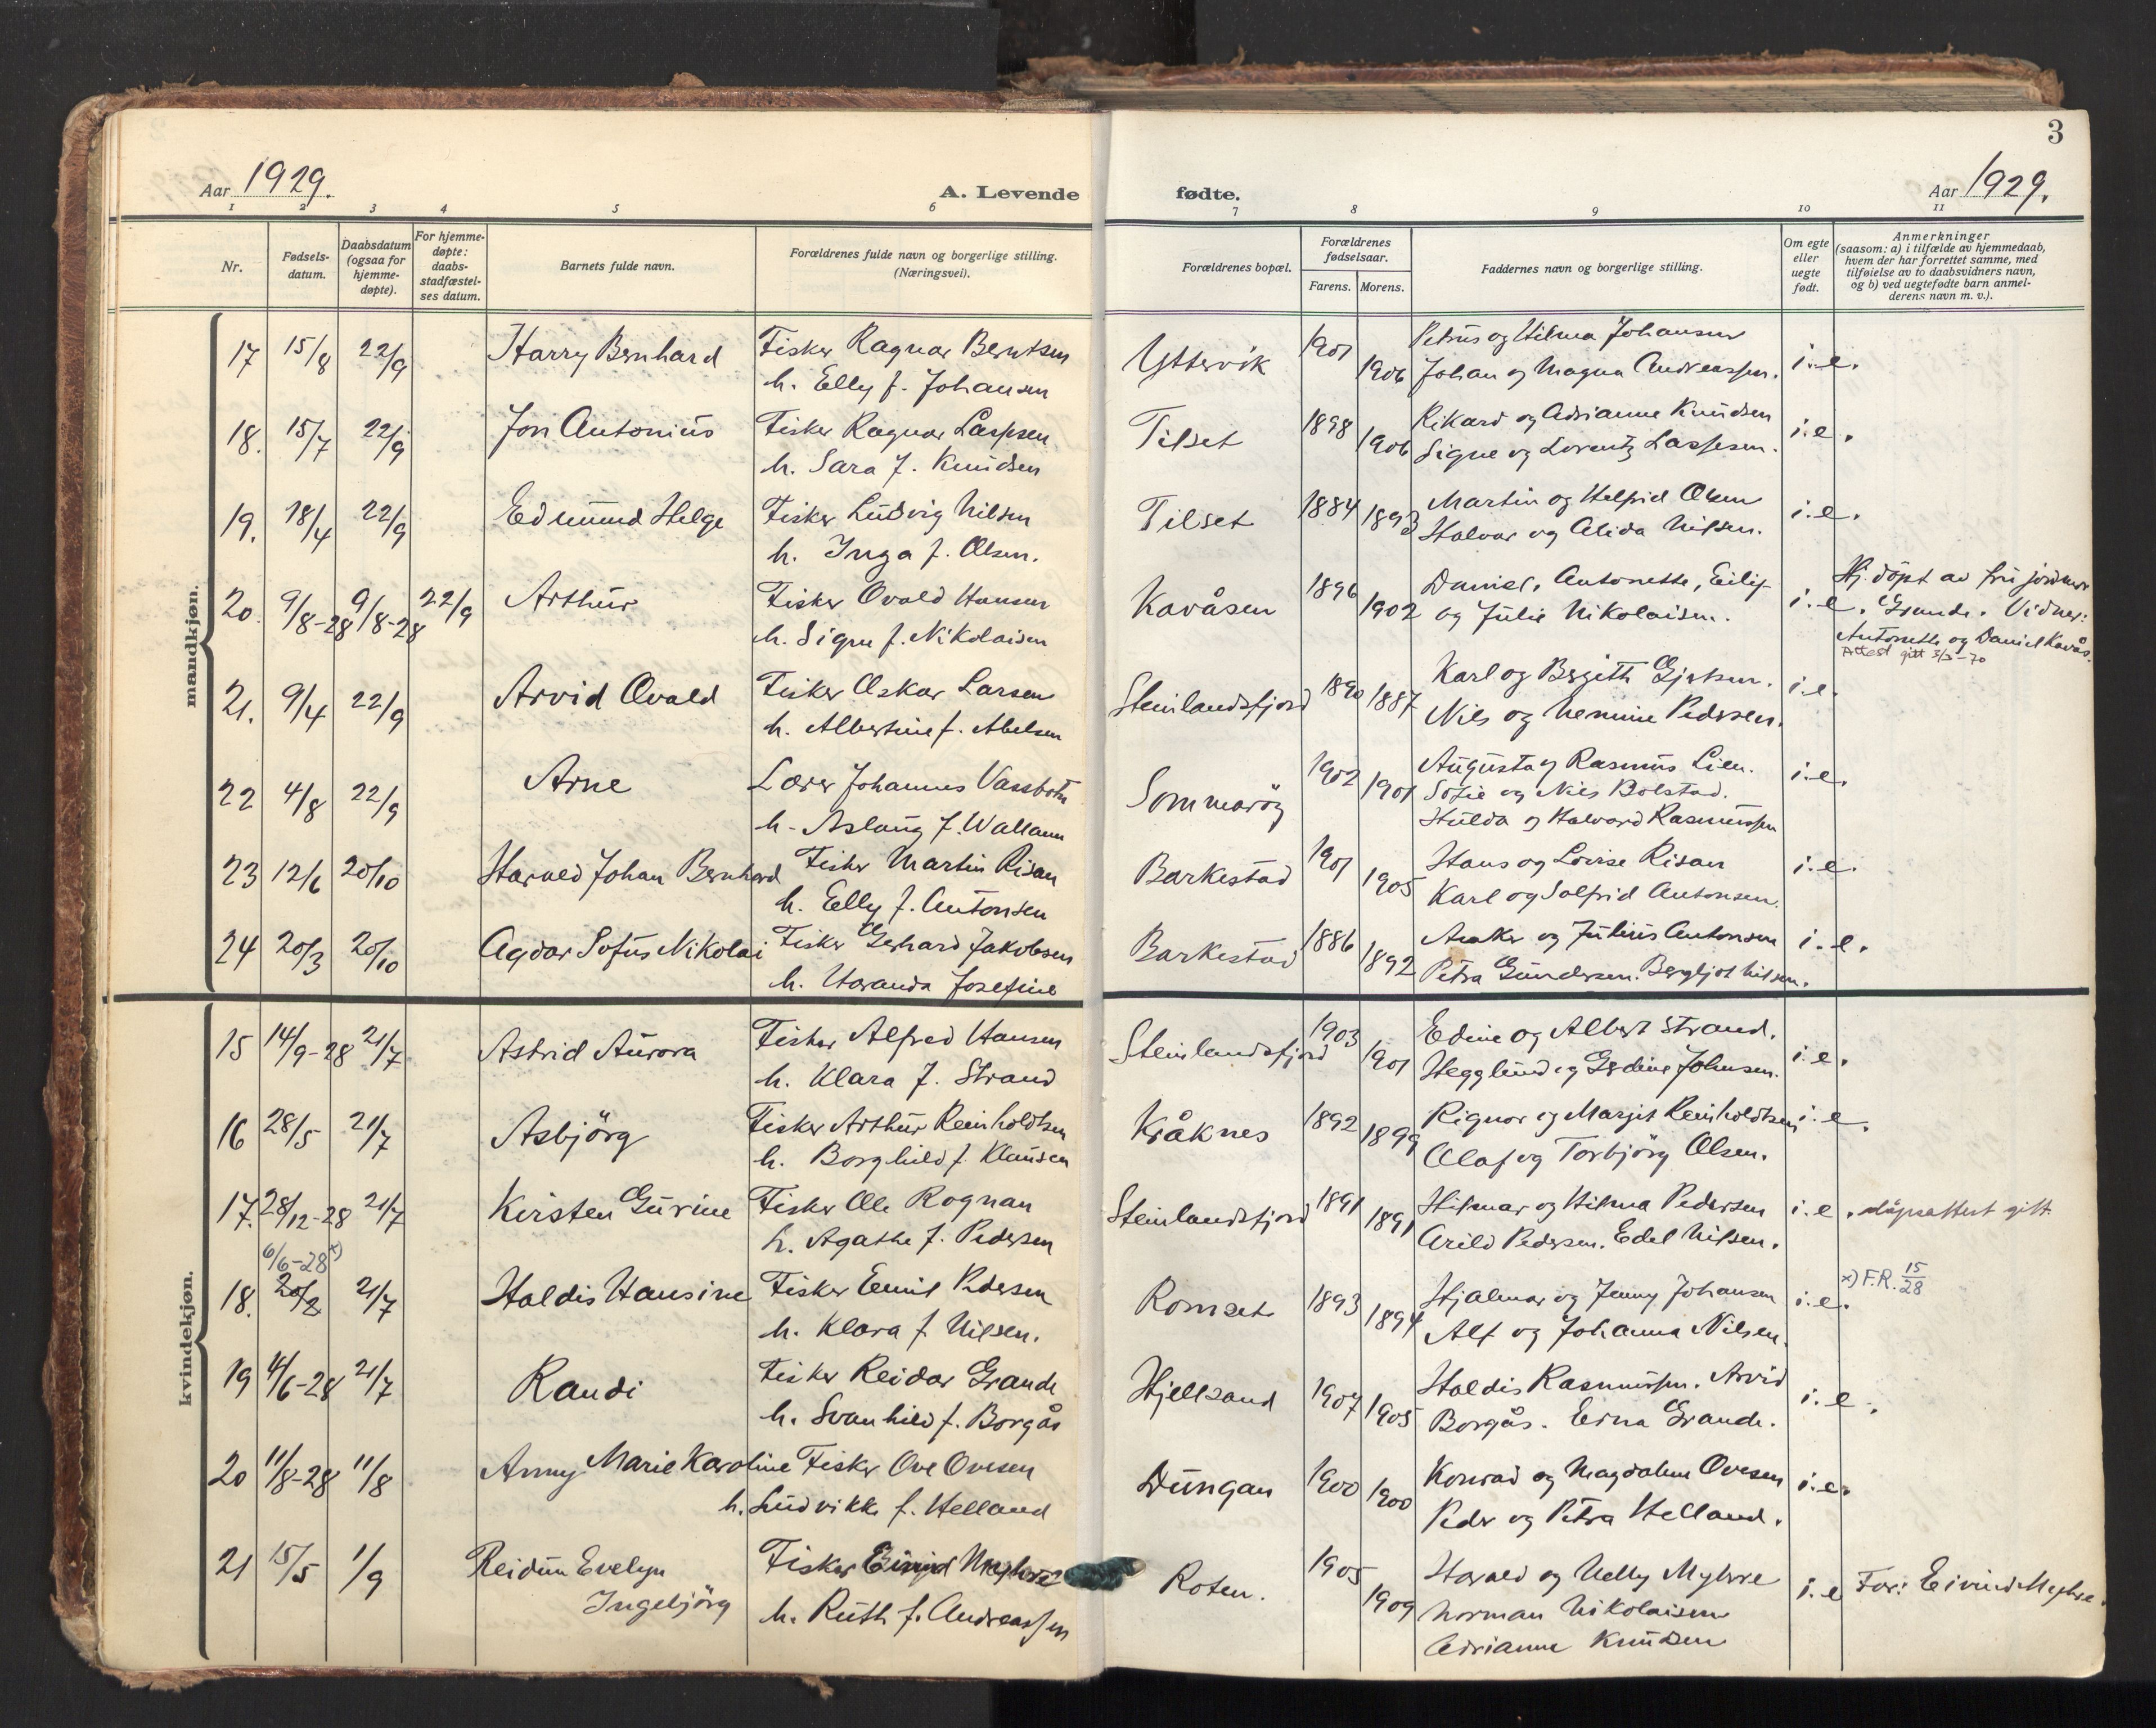 3
Aar 1929.
A. Levende
fødte.
Aar 1929.
1 2 3 4 5 6 7 8 9 10 11
Nr.
Fødsels-
datum.
Daabsdatum
(ogsaa for
hjemme-
døpte).
For hjemme-
døpte:
daabs-
stadfæstel-
ses datum.
Barnets fulde navn.
Forældrenes fulde navn og borgerlige stilling.
(Næringsvei).
Forældrenes bopæl.
Forældrenes
fødselsaar.
Farens. Morens.
Faddernes navn og borgerlige stilling.
Om egte
eller
uegte
født.
Anmerkninger
(saasom: a) i tilfælde av hjemmedaab,
hvem der har forrettet samme, med
tilføielse av to daabsvidners navn,
og b) ved uegtefødte barn anmel-
derens navn m. v.).
mandkjøn.
17 15/8 22/9 Harry Bernhard Fisker Ragnar Berntsen Yttervik 1901 Petrus og Hilma Johansen i.e.
h. Elly f. Johansen 1906 Johan og Magna Andreassen.
18. 15/7 22/9 Jon Antonius Fisker Ragnar Lassesen Tilset 1898 Rikard og Adrianne Knudsen i.e.
h. Sara f. Knudsen 1906 Signe og Lorentz Lassesen.
19. 18/4 22/9 Edmund Helge Fisker Ludvig Nilsen Tilset 1884 Martin og Helfrid Olsen i.e.
h. Inga f. Olsen. 1893 Halvar og Alida Nilsen.
20. 9/8-28 9/8-28 22/9 Arthur Fisker Ovald Hansen Kavåsen 1896 Daniel, Antonette, Eilif i.e. Hj. döpt av fru jordmor
h. Signe f. Nikolaisen 1902 og Julie Nikolaisen. Grande. Vidner:
Antonette og Daniel Kavås.
Attest gitt 3/3-70
21. 9/4 22/9 Arvid Ovald Fisker Oskar Larsen Steinlandsfjord 1890 Karl og Bergith Gjertsen. i.e.
h. Albertine f. Abelsen 1887 Nils og Nennie Pedersen.
22 4/8 22/9 Arne Lærer Johannes Vassbotn Sommaröy 1902 Augusta og Rasmus Lien. i.e.
h. Aslaug f. Wallann 1901 Sofie og Nils Bolstad.
Hulda og Halvard Rasmussen
23 12/6 20/10 Harald Johan Bernhard Fisker Martin Risan Barkestad 1901 Hans og Lovise Risan i.e.
h. Elly f. Antonsen 1905 Karl og Solfrid Antonsen.
24 20/3 20/10 Agdar Sofus Nikolai Fisker Gerhard Jakobsen Barkestad 1886 og Julius Antonsen i.e.
h. Haranda Josefine 1892 Petra Gundersen. Bergljot Nilsen.
kvindekjøn.
15 14/9-28 21/7 Astrid Aurora Fisker Alfred Hansen Steinlandsfjord 1903 Edine og Albert Strand. i.e.
h. Klara f. Strand 1901 Hegglund og Gerdine Johnsen.
16 28/5 21/7 Asbjörg Fisker Arthur Reinholdtsen Kråknes 1892 Rignor og Margit Reinholdtsen i.e.
h. Borghild f. Klausen 1899 Olaf og Torbjörg Olsen.
17. 28/12-28 21/7 Kirsten Gurine Fisker Ole Rognan Steinlandsfjord 1891 Hilmar og Hilma Pedersen i.e. döpsattest gitt.
h. Agathe f. Pedersen 1891 Arild Pedersen. Edel Nilsen.
6/6-28 x)
18. 20/2 21/7 Haldis Hansine Fisker Emil Pedersen Romset 1893 Hjalmar og Jenny Johansen i.e. x) F.R. 15/28
h. Klara f. Nilsen. 1894 Alf og Johanna Nilsen.
19 4/6-28 21/7 Randi Fisker Reidar Grande Hjellsand 1907 Haldis Rasmussen. Arvid i.e.
h. Svanhild f. Borgås 1905 Borgås. Erna Grande.
20 11/8-28 11/8 Anny Marie Karoline Fisker Ove Ovesen Dungan 1900 Konrad og Magdalene Ovesen i.e.
h. Ludvikke f. Helland 1900 Peder og Petra Helland.
21 15/5 1/9 Reidun Evelyn Fisker Eivind Myhre Roten. 1905 Harald og Nelly Myhre i.e. Far: Eivind Myhre.
Ingebjörg h. Ruth f. Andreassen 1909 Norman Nikolaisen
Adrianne Knudsen